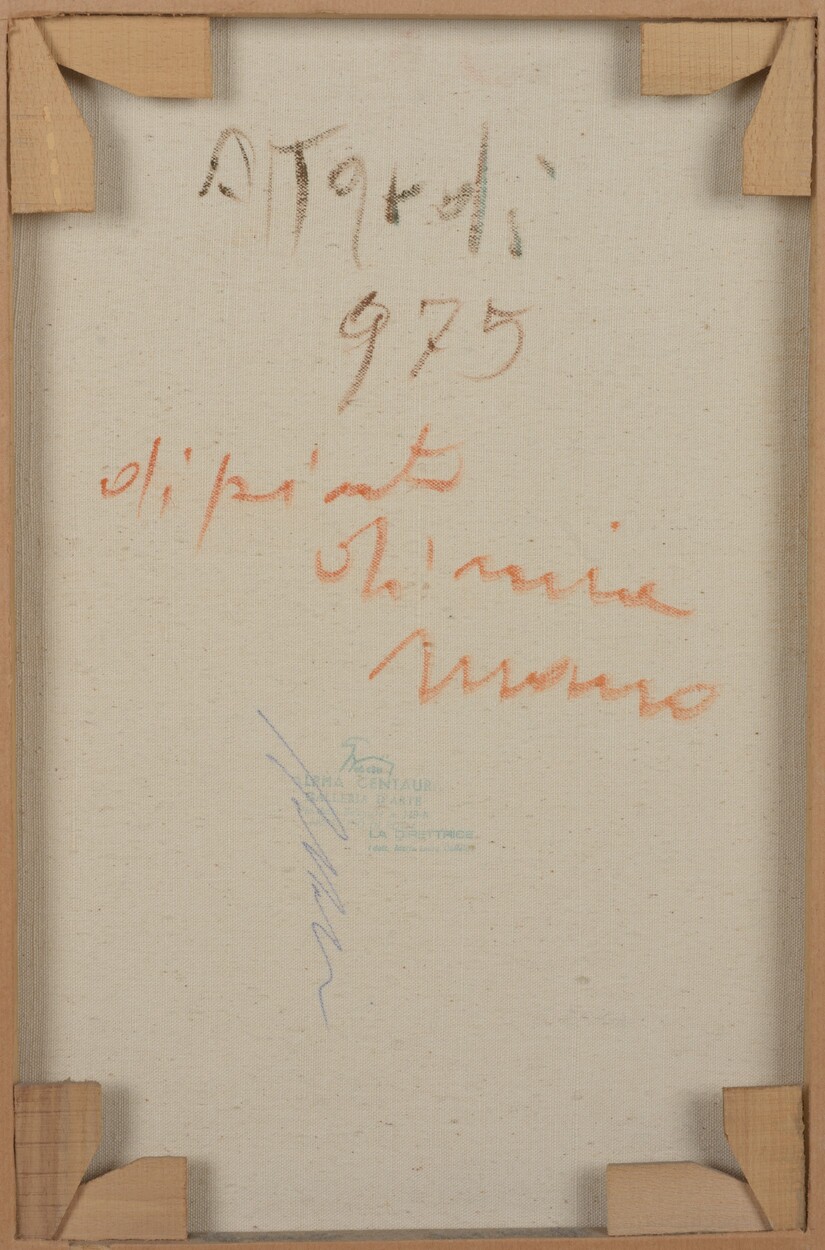 Attardi
975
dipinto
di mia
mano
ALPHA CENTAURI
GALLERIA D'ARTE
LA DIRETTRICE